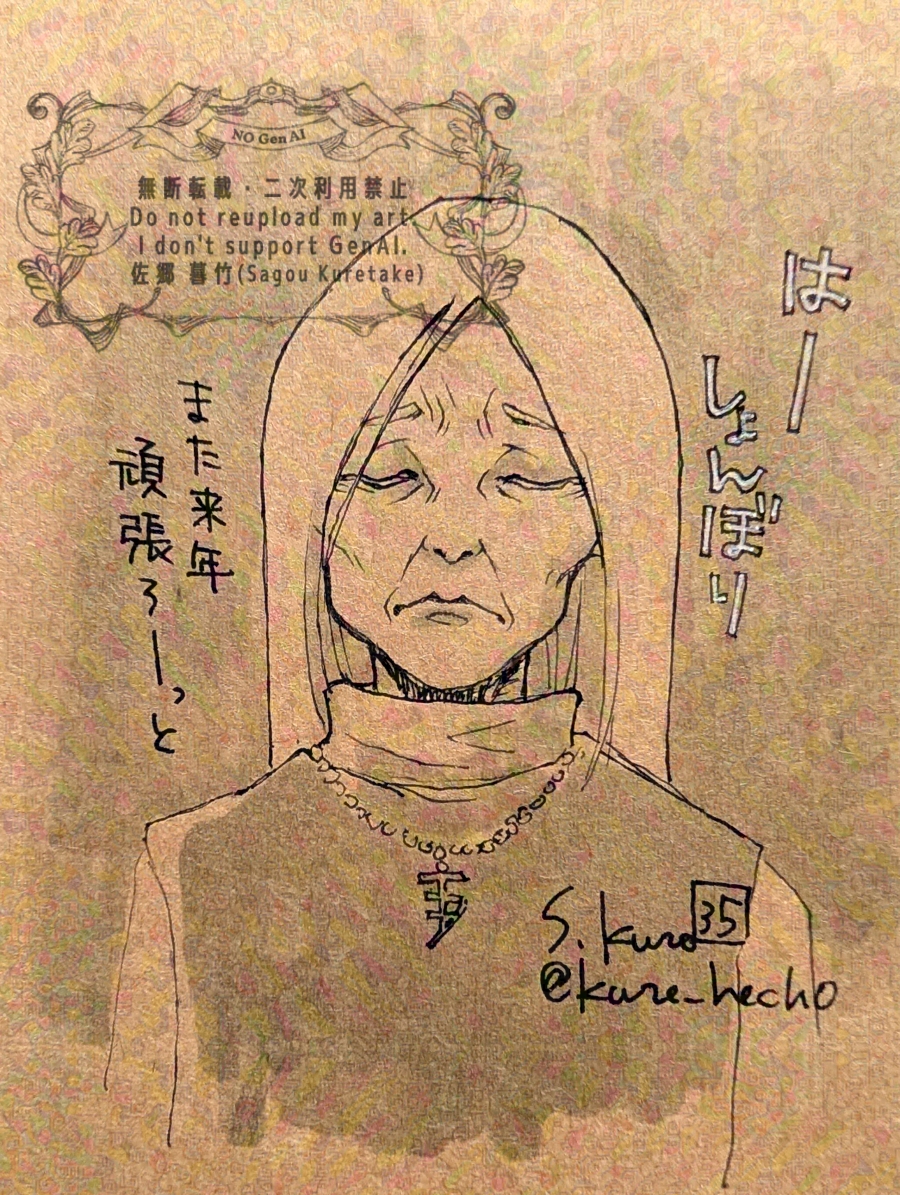 NO Gen AI
無断転載・二次利用禁止
Do not reupload my art.
I don't support GenAI.
佐郷 暮竹(Sagou Kuretake)
はー
しょんぼり
また来年
頑張ろーっと
S. kure
35
@kure_hecho